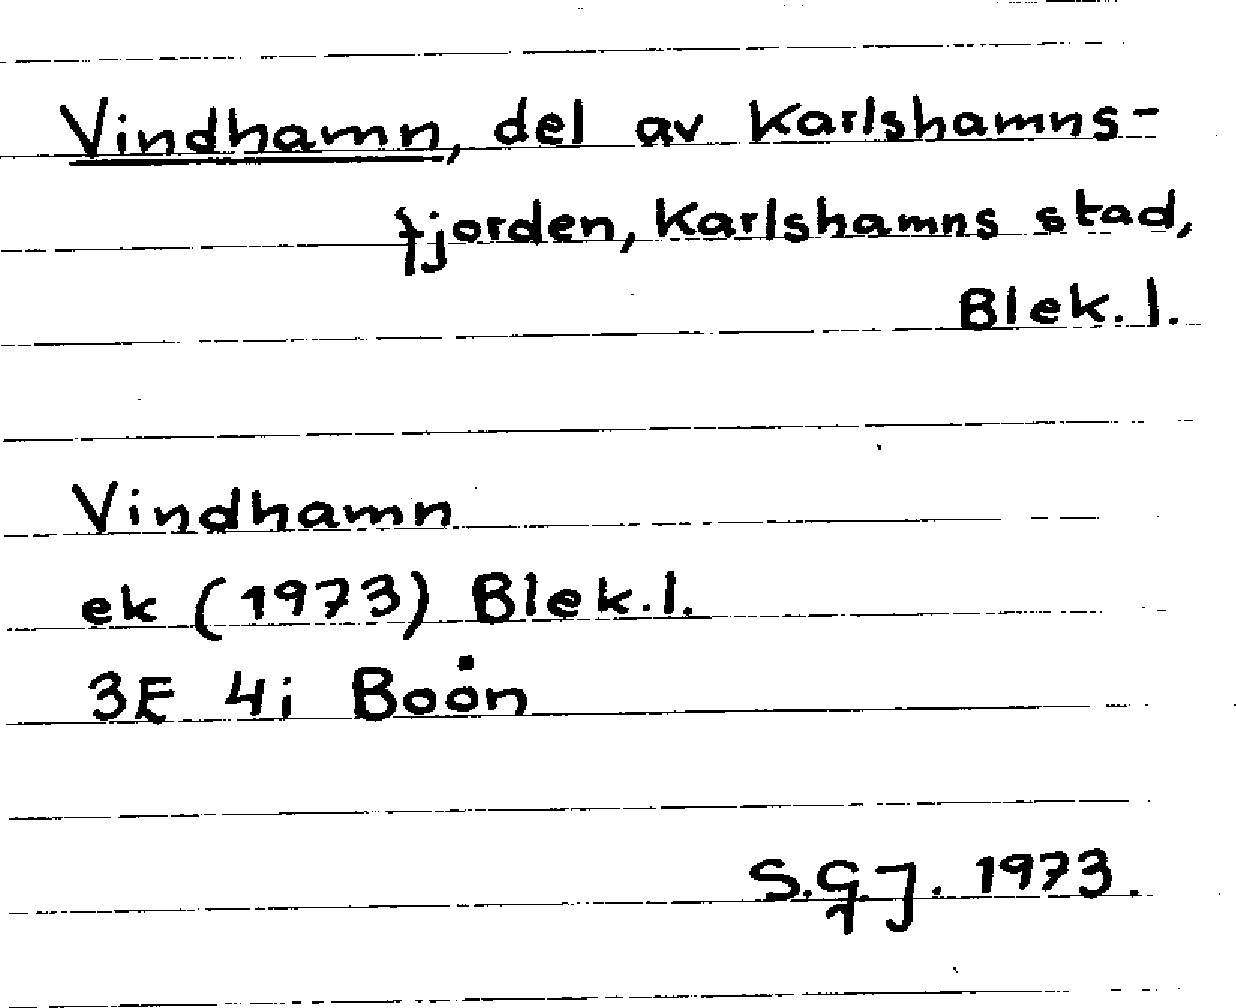 Vindhamn, del av Karlshamns-
fjorden, Karlshamns stad,
Blek. l.
Vindhamn
ek (1973) Blek. l.
3E 4i Boön
S.G.J. 1973.